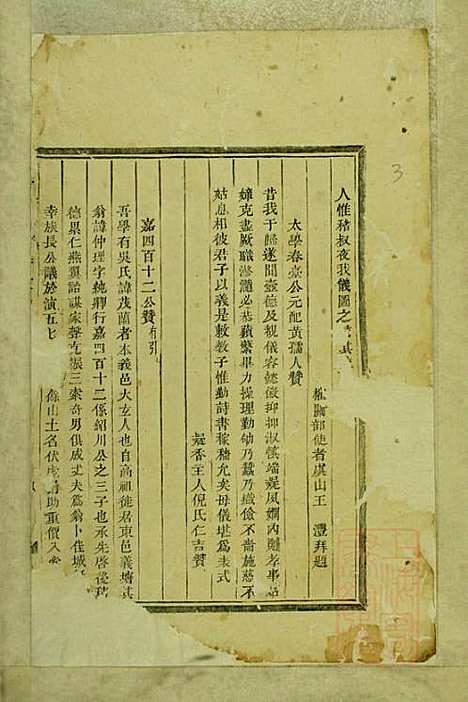 人惟稽叔夜我儀圖之
權關部使者虞山王 澧拜題
太學春臺公元配黃孺人贊
昔我于歸遂聞壼德及覿儀容懿僌抑抑淑慎端凝夙嫻內則孝事
嫜克盡厥職滫瀡必恭蘋蘩畢力操理勤劬乃蠶乃織儉不嗇施慈不
姑息相彼君子以義是敦教子惟勤詩書稼穡允矣母儀堪為表式
凝香主人倪氏仁吉贊
嘉四百十二公贊有引
吾學有吳氏諱茂蘭者本義邑大玄人也自高祖徙居東邑義塘其
翁諱仲理字純卿行嘉四百十二係紹川公之三子也承先啓後
德累仁燕翼詒謀家聲克振三索奇男俱成丈夫為翁卜佳城
幸族長公議於演五
山土名伏虎 助重價入
3